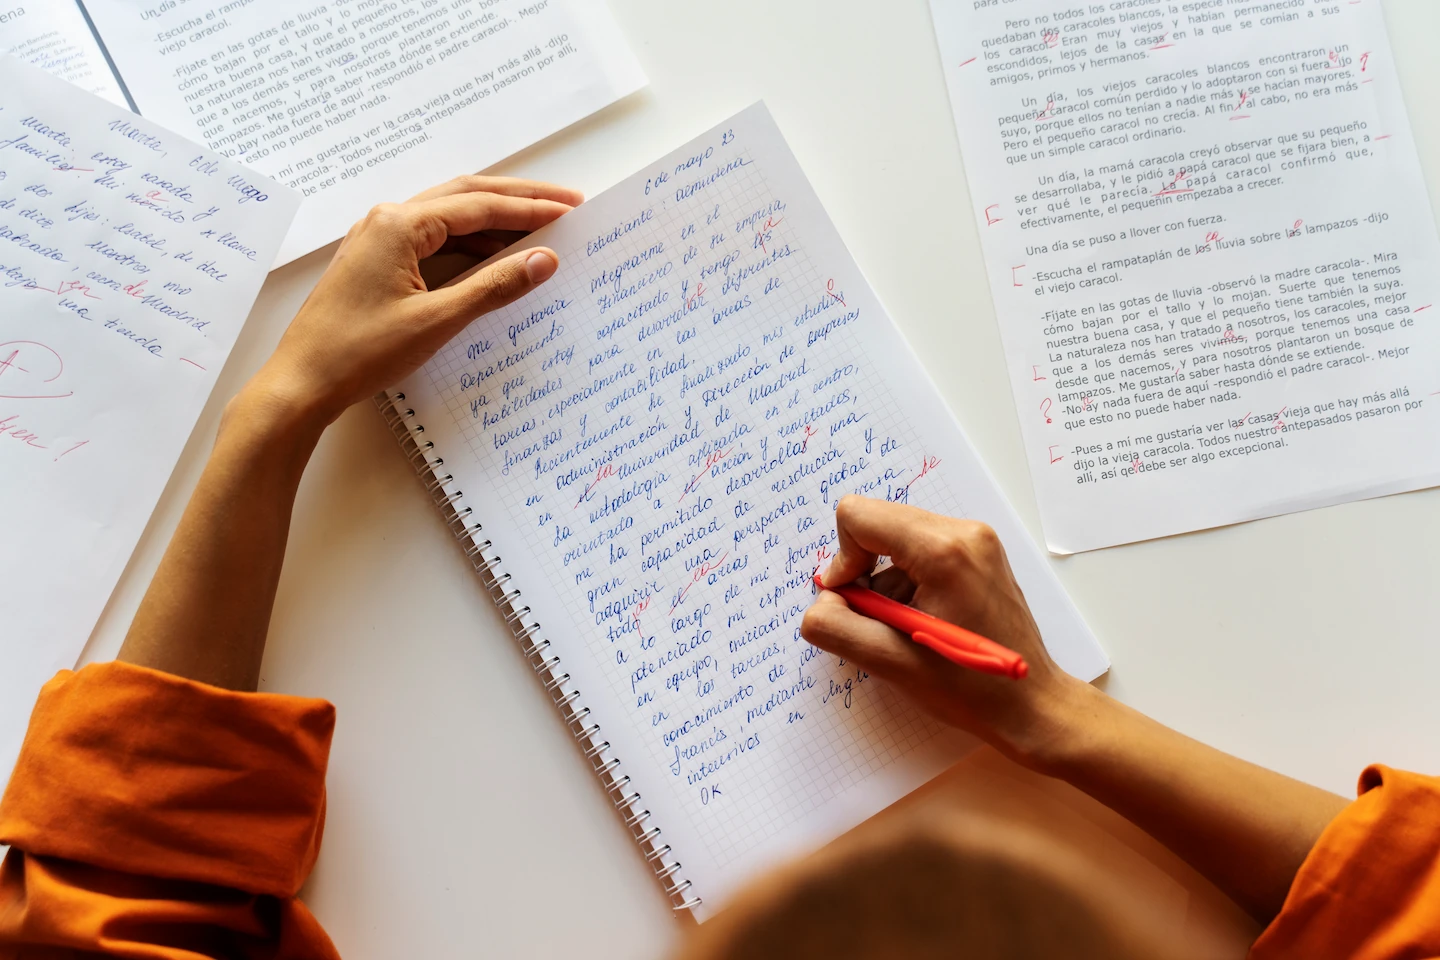 6 de mayo 23
Estudiante: Almudena
Me gustaría integrarme en el
Departamento Financiero de su empresa,
ya que estoy capacitado y tengo las
habilidades para desarrollar diferentes
tareas, especialmente en las áreas de
finanzas y contabilidad.
Recientemente he finalizado mis estudios
en administración y Dirección de empresas
en el la Universidad de Madrid.
La metodología aplicada en el centro,
orientada a el la acción y resultados,
me ha permitido desarrollar una
gran capacidad de resolución y
adquirir una perspectiva global de
todo el la áreas de la
a lo largo de mi
potenciado mi
en equipo, iniciativa
en las tareas,
conocimiento de
francés, mediante
intensivos en
OK
Marta, 6 de mayo
Marta. estoy casada y
familia. Mi marido se llama
una tienda
Un día se
-Escucha el rampataplán de los lluvia sobre
viejo caracol.
-Fíjate en las gotas de lluvia
cómo bajan por el tallo y lo mojan.
nuestra buena casa, y que el pequeño
La naturaleza nos han tratado a nosotros, los
que a los demás seres vivos, porque tenemos una
que nacemos, y para nosotros plantaron un bos
lampazos. Me gustaría saber hasta dónde se extiende.
-No hay nada fuera de aquí -respondió el padre caracol-. Mejor
esto no puede haber nada.
a mi me gustaría ver la casa vieja que hay más allá -dijo
caracola-. Todos nuestros antepasados pasaron por allí,
be ser algo excepcional.
Pero no todos los caracoles
quedaban dos caracoles blancos, la especie más
los caracol. Eran muy viejos, y habían permanecido
escondidos, lejos de la casas en la que se comían a sus
amigos, primos y hermanos.
Un día, los viejos caracoles blancos encontraron un
pequeña caracol común perdido y lo adoptaron con si fuera ijo
suyo, porque ellos no tenían a nadie más y se hacían mayores.
Pero el pequeño caracol no crecía. Al fin y al cabo, no era más
que un simple caracol ordinario.
Un día, la mamá caracola creyó observar que su pequeño
se desarrollaba, y le pidió a papá caracol que se fijara bien, a
ver qué le parecía. La papá caracol confirmó que,
efectivamente, el pequeñín empezaba a crecer.
Una día se puso a llover con fuerza.
-Escucha el rampataplán de los lluvia sobre las lampazos -dijo
el viejo caracol.
-Fíjate en las gotas de lluvia -observó la madre caracola-. Mira
cómo bajan por el tallo y lo mojan. Suerte que tenemos
nuestra buena casa, y que el pequeño tiene también la suya.
La naturaleza nos han tratado a nosotros, los caracoles, mejor
que a los demás seres vivimos, porque tenemos una casa
desde que nacemos, y para nosotros plantaron un bosque de
lampazos. Me gustaría saber hasta dónde se extiende.
-No ay nada fuera de aquí -respondió el padre caracol-. Mejor
que esto no puede haber nada.
-Pues a mi me gustaría ver las casas vieja que hay más allá
dijo la vieja caracola. Todos nuestro antepasados pasaron por
allí, así qe debe ser algo excepcional.